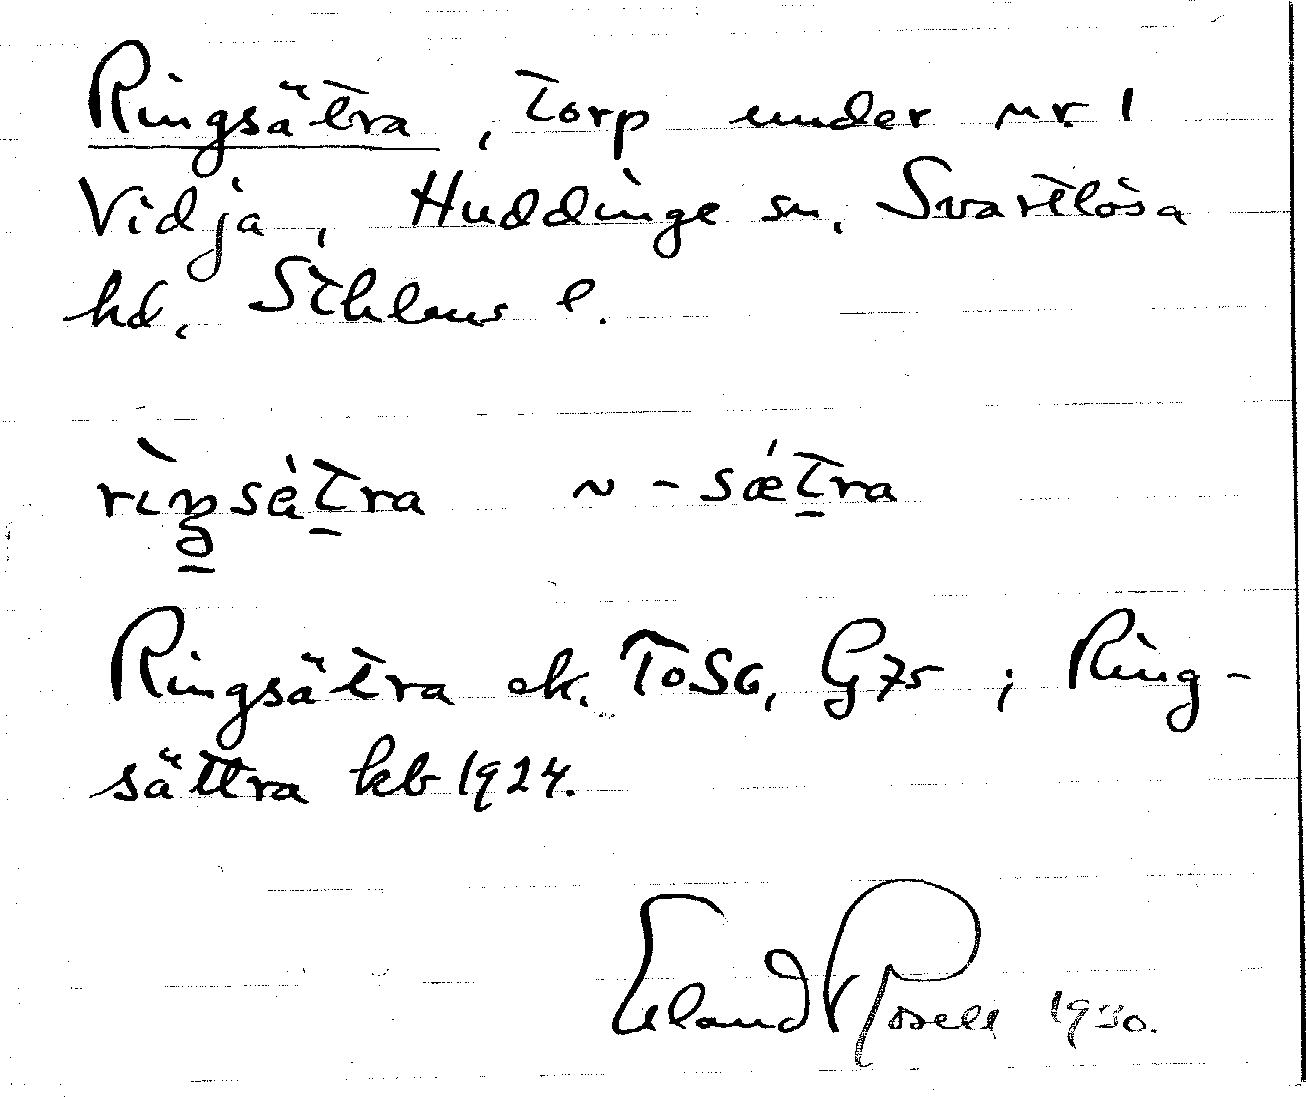 Ringsätra, Torp under nr. 1
Vidja, Huddinge sn, Svartlösa
hd, Sthlms l.
rìŋsèt̠ra ~ -sǽt̠ra
Ringsätra ek. ToSG, G75; Ring-
sättra kb 1924.
Erland Rosell 1930.